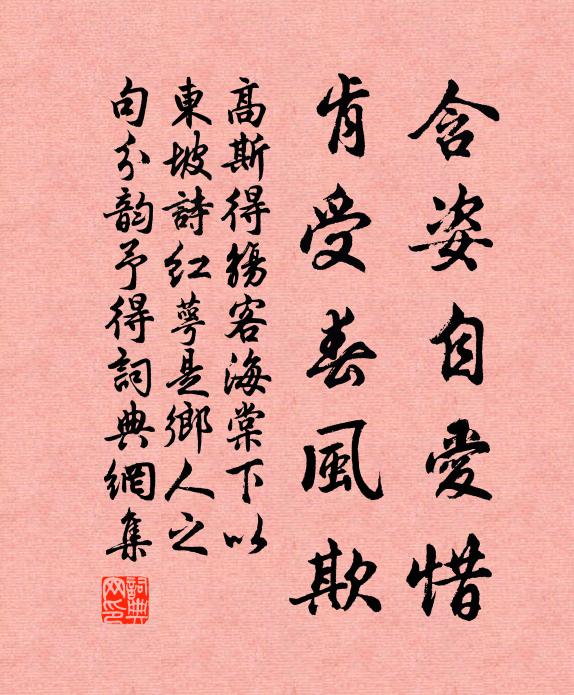 含姿自愛惜
肯受春風欺
高斯得觴客海棠下以
東坡詩紅萼是鄉人之
句分韵予得詞典網集
詞典網印